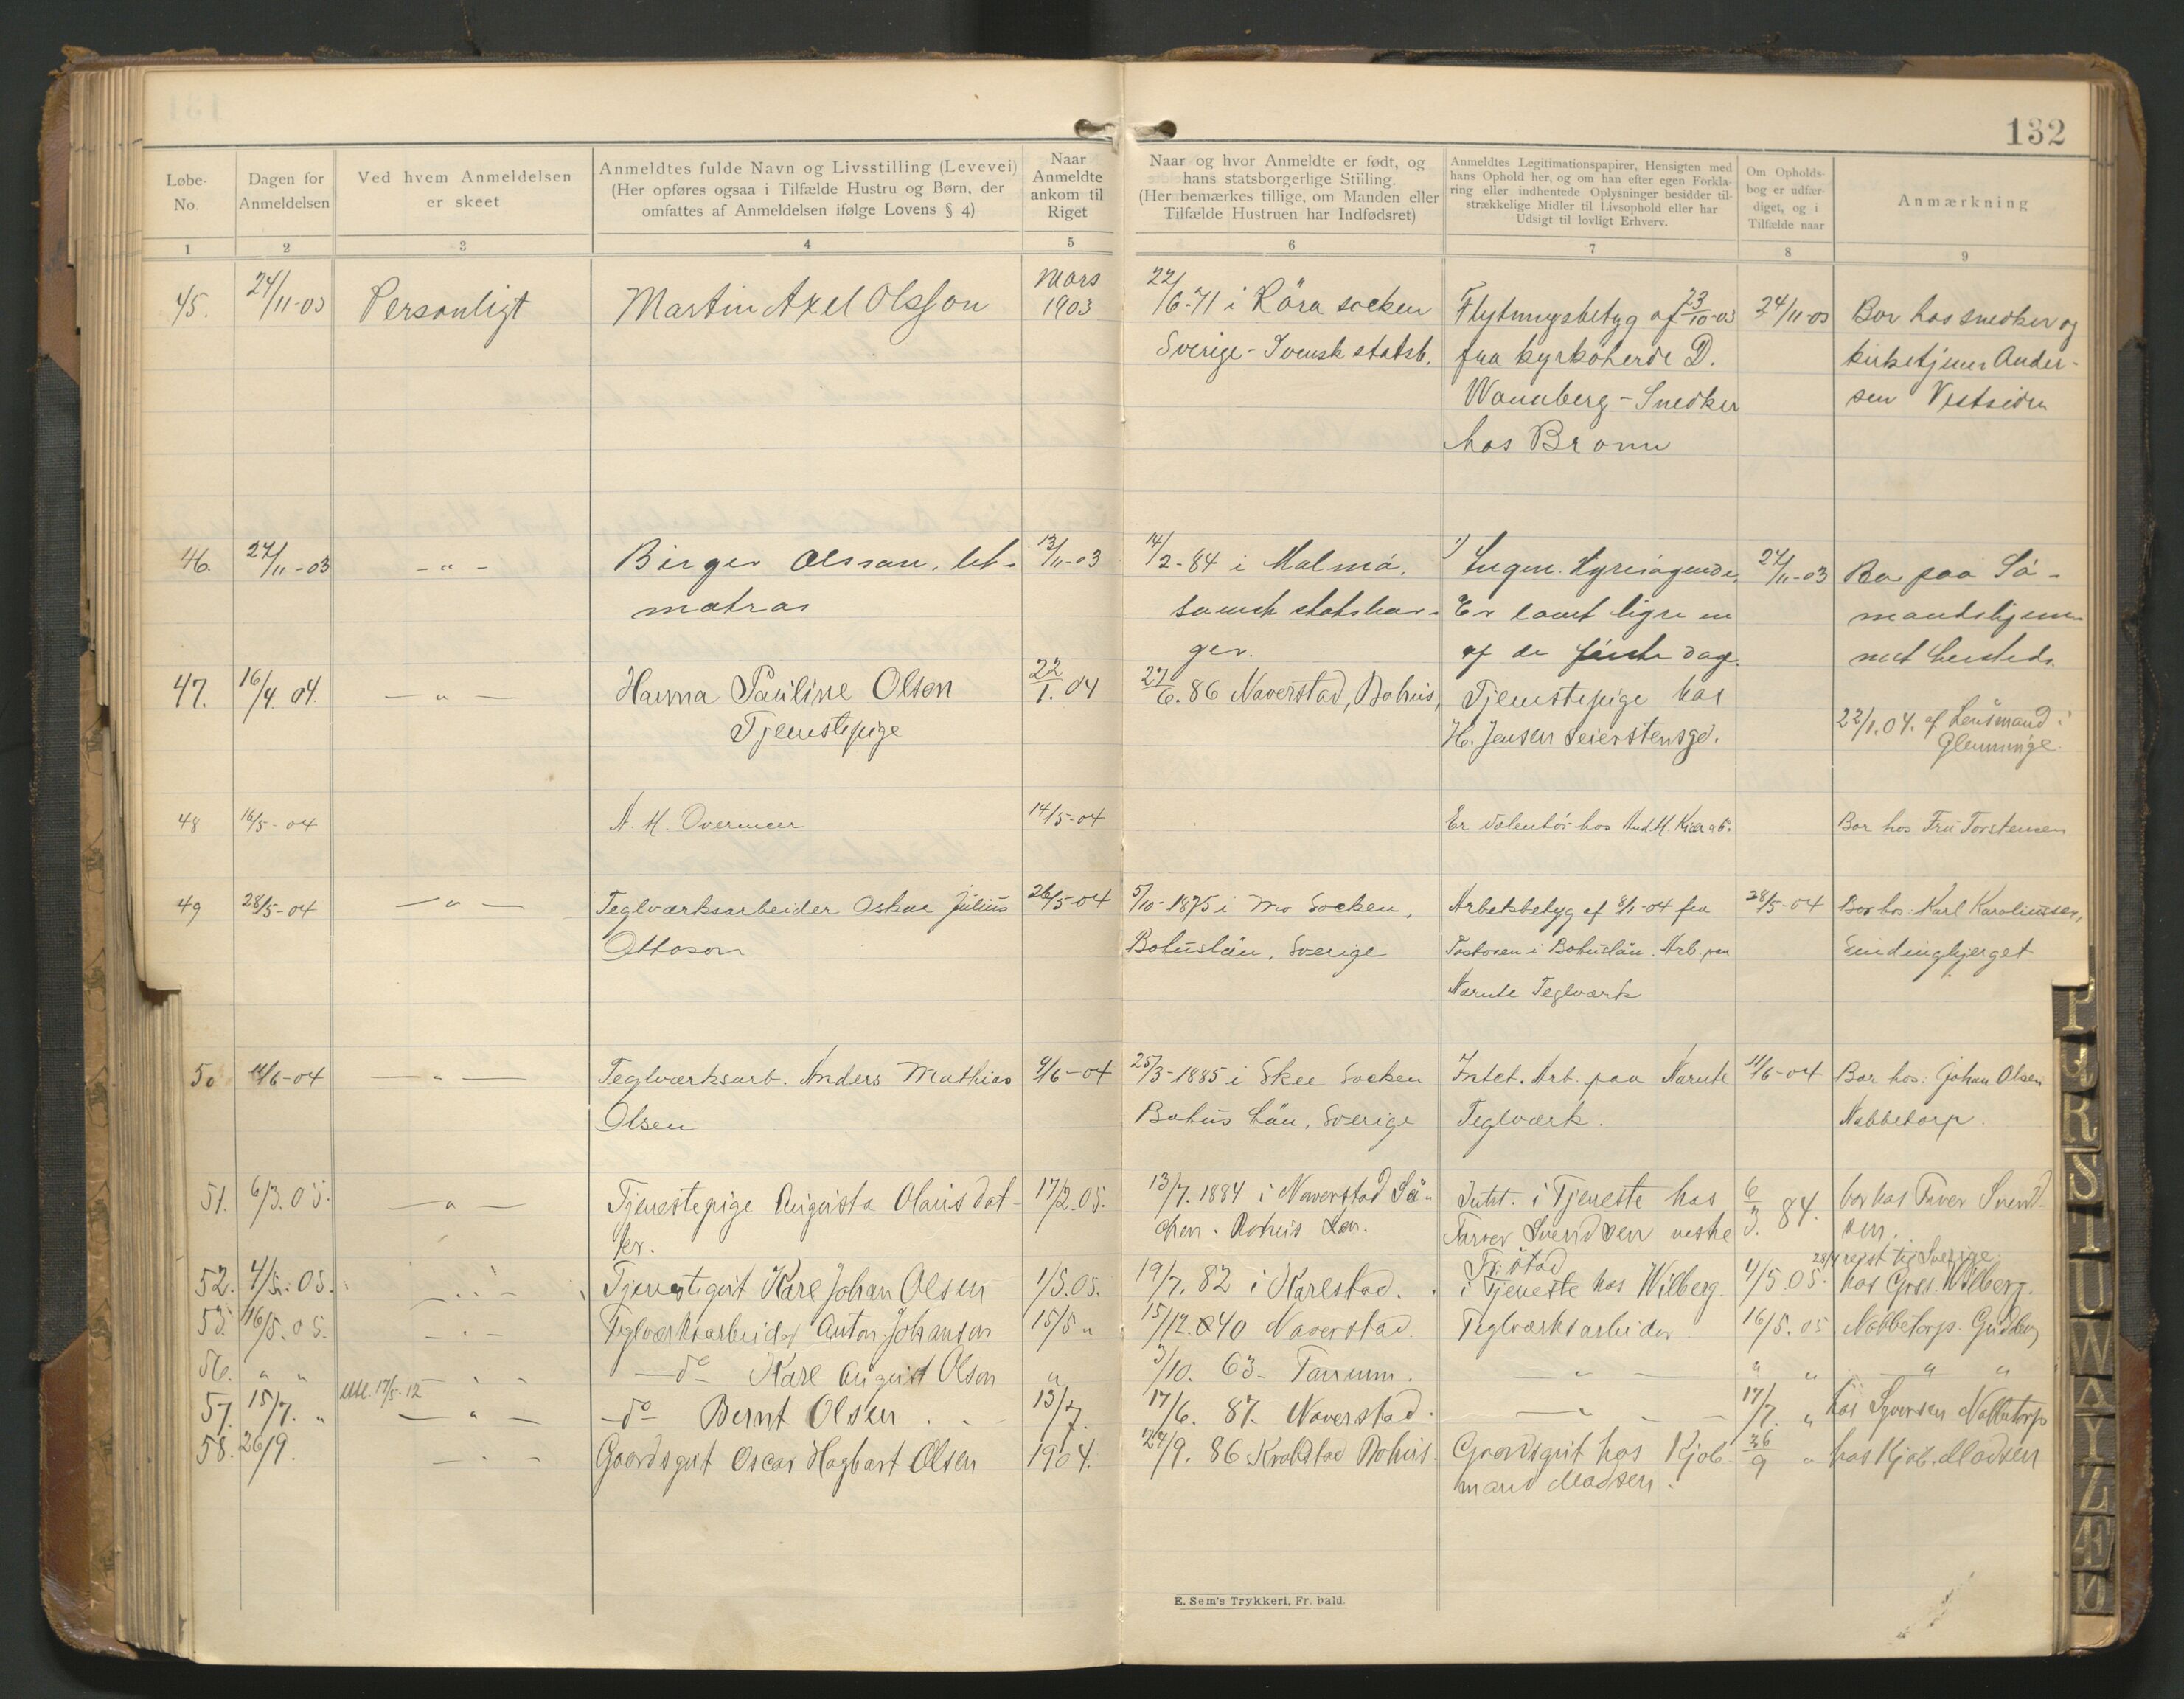 132
Løbe-
No.
Dagen for
Anmeldelsen
Ved hvem Anmeldelsen
er skeet
Anmeldtes fulde Navn og Livsstilling (Levevei)
(Her opføres ogsaa i Tilfælde Hustru og Børn, der
omfattes af Anmeldelsen ifølge Lovens § 4)
Naar
Anmeldte
ankom til
Riget
Naar og hvor Anmeldte er født, og
hans statsborgerlige Stilling.
(Her bemærkes tillige, om Manden eller
Tilfælde Hustruen har Indfødsret)
Anmeldtes Legitimationspapirer, Hensigten med
hans Ophold her, og om han efter egen Forkla-
ring eller indhentede Oplysninger besidder til-
strækkelige Midler til Livsophold eller har
Udsigt til lovligt Erhverv.
Om Opholds-
bog er udfær-
diget, og i
Tilfælde naar
Anmærkning
1 2 3 4 5 6 7 8 9
45. 24/11-03 Personligt Martin Axel Olsson Mars 1903 22/6-71 i Röra socken Flytningsbetyg af 23/10-03 24/11-03 Bor hos snedker og
Sverige - Svensk statsb. fra kyrkoherde D. kirketjener Ander-
Wannberg - Snedker sen Vestsiden
hos Bronn
46. 27/11-03 - " - Birger Olsson, let- 13/11-03 14/2-84 i Malmö, 1) Ingen. Hyresøgende. 27/11-03 Bor paa Sø-
matros svensk statsbor- Er lovet hyre en mandshjem-
ger. af de første dage. met hersteds.
47. 16/4. 04. - " - Hanna Pauline Olsen 22/1. 04 27/6. 86 Naverstad, Bohus, Tjenestepige hos
Tjenestepige H. Jensen Seierstensgd. 22/1.04. af Lensmand i
Glemminge.
48 16/5-04 A. M. Overmeer 14/5-04 Er volontør hos And. H. Kiær & Co. Bor hos Fru Torstensen
49 28/5-04 - " - Teglværksarbeider Oskar Julius 26/5-04 5/10-1875 i Mo Socken, Arbetsbetyg af 8/1-04 fra 28/5-04 Bor hos: Karl Karoliussen,
Ottoson Bohuslän, Sverige Pastoren i Bohuslän. Arb. paa
Narnte Teglværk
50 11/6-04 - " - Teglværksarb. Anders Mathias 9/6-04 25/3-1885 i Skee Socken Intet. Arb. paa Narnte 11/6-04 Bor hos: Johan Olsen
Olsen Bohus Län, Sverige Teglværk. Nabbetorp.
51. 6/3.05. - " - Tjenestepige Augusta Olausdat- 17/2.05. 13/7. 1884 i Naverstad Sö- Intet. i Tjeneste hos 6/3. 84. bor hos Farver Svend-
ter. chen. Bohus Len. Farver Svendsen vestre sen.
Fr.stad 28/4 reist til Sverige.
52. 4/5. 05. - " - Tjenestegut Karl Johan Olsen 1/5.05. 19/7. 82 i Karlstad. i Tjeneste hos Wilberg. 4/5.05. hos Gros. Wilberg.
53. 16/5. 05. - " - Teglværksarbeider Anton Johanson 15/5 " 15/12. 40 Naverstad. Teglværksarbeider 16/5. 05 Nabbetorp. Gudberg
56. " " - " - - do - Karl August Olson " 3/10. 63 - Tannum. - " - " " " "
57. 15/7. " 17/5-12 - " - - do - Bernt Olsen 13/7. 17/6. 87. Naverstad. - " - 17/7. " hos Syversen Nabbetorp
58. 26/9. - " - Gaardsgut Oscar Hagbart Olsen 1904. 24/9. 86 Krokstad Bohus. Gaardsgut hos Kjøb- 26/9 " hos Kjøb. Madsen
mand Madsen.
E. Sem's Trykkeri, Fr. hald.
P Q R S T U W X Y Z Æ Ø